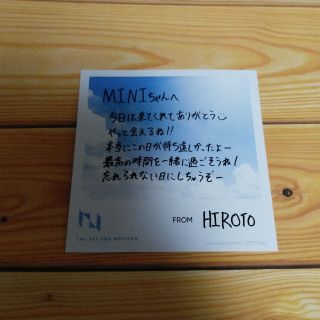 MINIちゃんへ
今日は来てくれてありがとう
やっと会えるね!!
本当にこの日が待ち遠しかったよー
最高の時間を一緒に過ごそうね!
忘れられない日にしちゃうぞー
FROM HIROTO
THE 1ST FAN MEETING